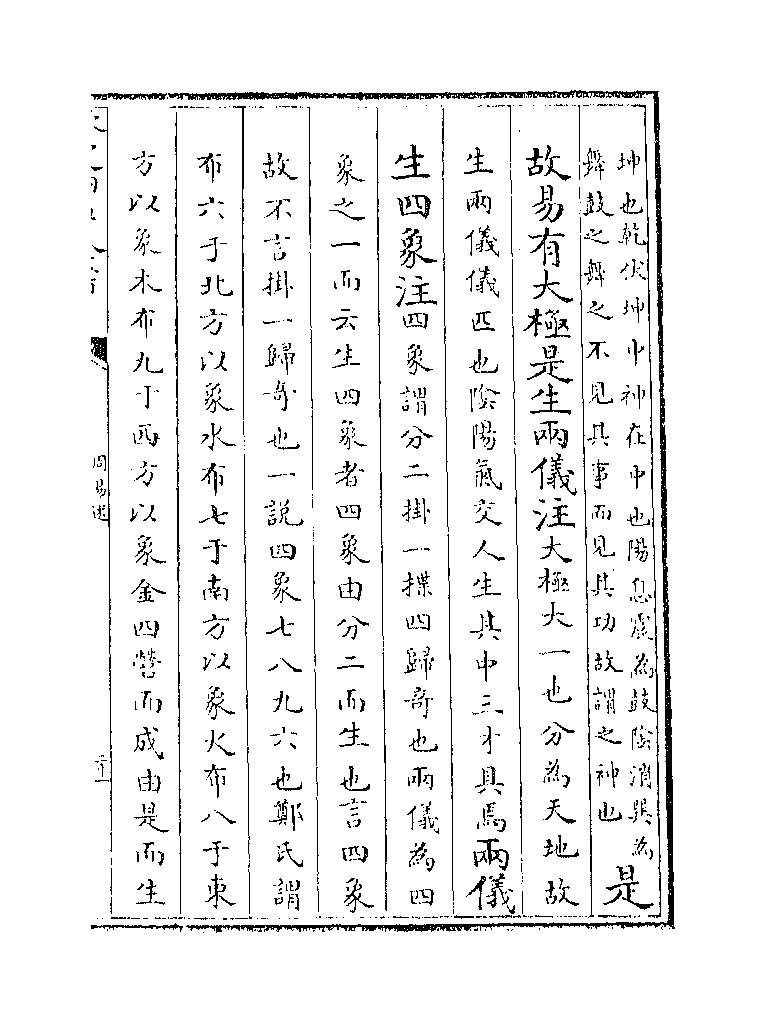 坤也乾伏坤中神在中也陽息震為鼓陰消巽為
舞鼓之舞之不見其事而見其功故謂之神也
是
故易有大極是生兩儀注大極大一也分為天地故
生兩儀儀匹也陰陽氣交人生其中三才具焉兩儀
生四象注四象謂分二掛一揲四歸奇也兩儀為四
象之一而云生四象者四象由分二而生也言四象
故不言掛一歸奇也一說四象七八九六也鄭氏謂
布六于北方以象水布七于南方以象火布八于東
方以象木布九于西方以象金四營而成由是而生
周易述